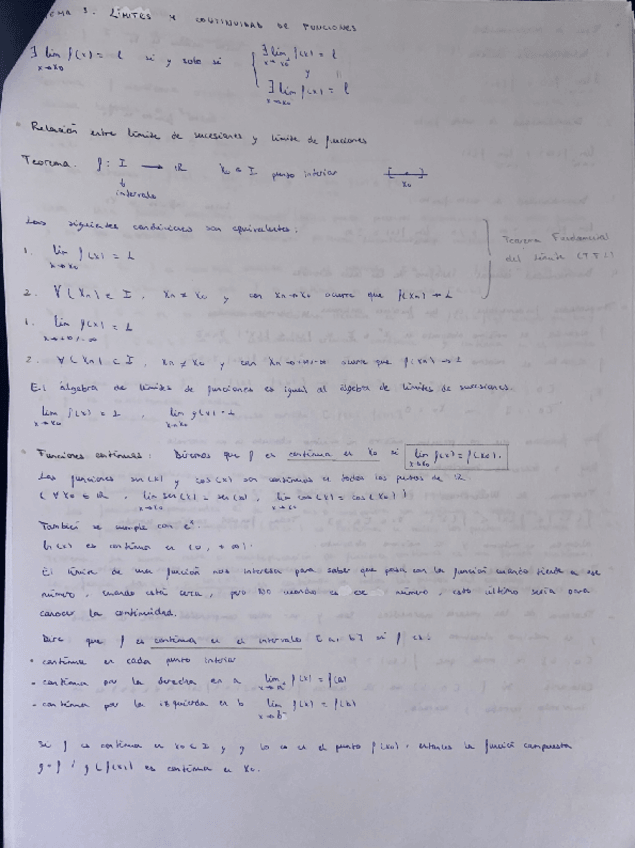 TEMA 3. LÍMITES Y CONTINUIDAD DE FUNCIONES
∃ lim f(x) = l si y solo si { ∃ lim f(x) = l
x→x₀ y
∃ lim f(x) = l
x→x₀
• Relación entre límite de sucesiones y límite de funciones
Teorema. f: I → ℝ x₀ ∈ I punto interior x₀
intervalo
Las siguientes condiciones son equivalentes:
1. lim f(x) = L
x→x₀
Teorema Fundamental del límite (TFL)
2. ∀(xₙ) ⊂ I, xₙ ≠ x₀ y con xₙ→x₀ ocurre que f(xₙ) → L
1. lim f(x) = L
x→+∞/-∞
2. ∀(xₙ) ⊂ I, xₙ ≠ x₀ y con xₙ→+∞/-∞ ocurre que f(xₙ) → L
El álgebra de límites de funciones es igual al álgebra de límites de sucesiones.
lim f(x) = L , lim g(x) =
x→x₀ x→x₀
• Funciones continuas: Diremos que f es continua en x₀ si lim f(x) = f(x₀).
x→x₀
Las funciones sen(x) y cos(x) son continuas en todos los puntos de ℝ
(∀x₀ ∈ ℝ, lim sen(x) = sen(x₀), lim cos(x) = cos(x₀))
También se cumple con eˣ
ln(x) es continua en (0, +∞).
El límite de una función nos interesa para saber que pasa con la función cuando tiende a ese
número, cuando está cerca, pero NO cuando es ese número, esto último sería para
conocer la continuidad.
Dire que f es continua en el intervalo [a, b] si f es:
• continua en cada punto interior
- continua por la derecha en a lim f(x) = f(a)
x→a⁺
- continua por la izquierda en b lim f(x) = f(b)
x→b⁻
Si f es continua en x₀ ∈ I y g lo es en el punto f(x₀), entonces la función compuesta
g∘f / g(f(x)) es continua en x₀.